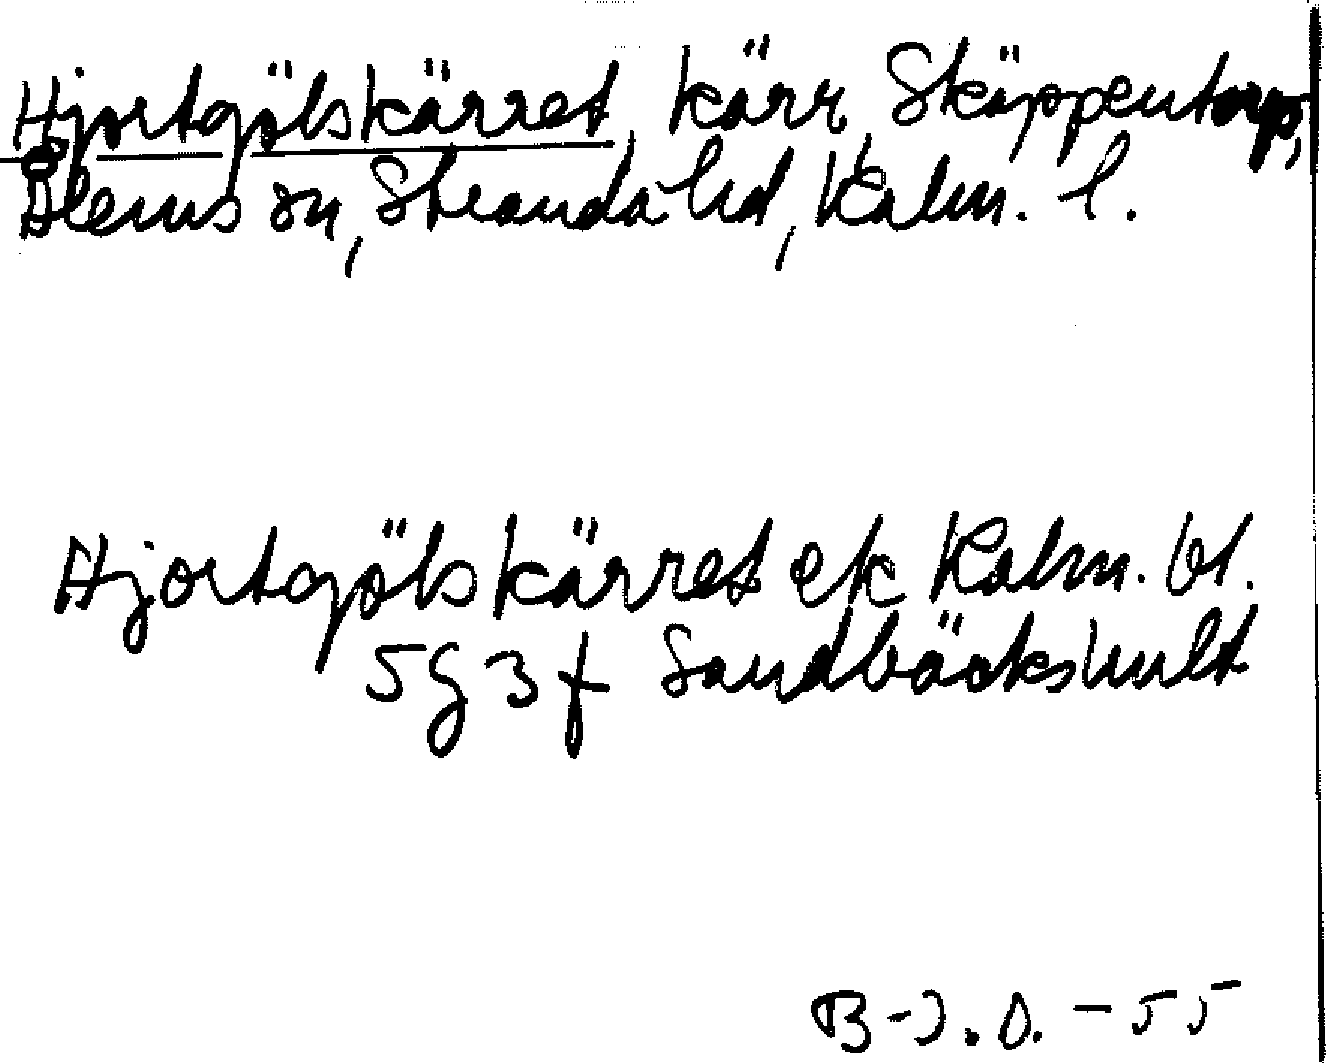 Hjortgölskärret, kärr, Skäppentorp,
Ålems sn, Stranda hd, Kalm. l.
Hjortgölskärret ek Kalm. bl.
5G 3f Sandbäckshult
B-J.O. - 55